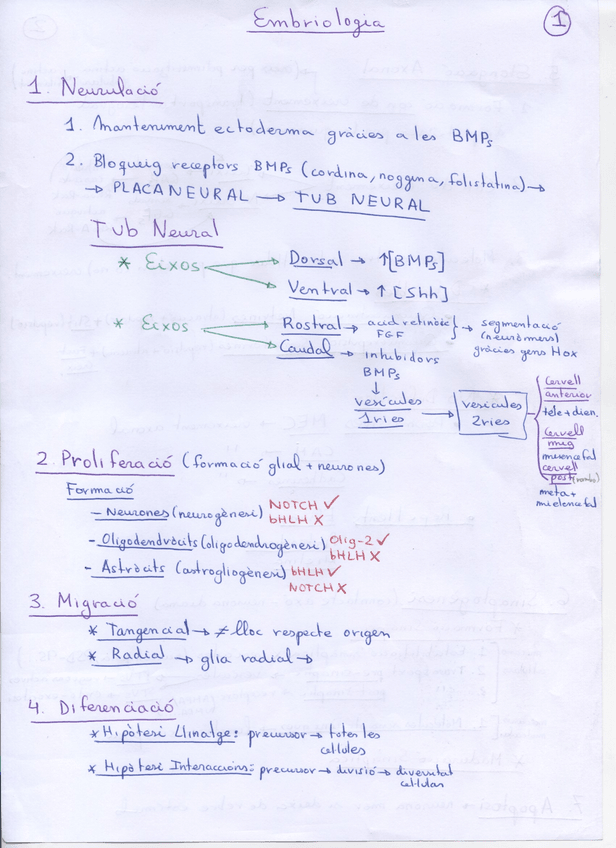 Embriologia
1
1. Neurulació
1. Manteniment ectoderma gràcies a les BMPs
2. Bloqueig receptors BMPs (cordina, noggina, folistatina) →
→ PLACA NEURAL → TUB NEURAL
Tub Neural
* Eixos → Dorsal → ↑[BMPs]
→ Ventral → ↑[Shh]
* Eixos → Rostral → acid retinòic FGF } → segmentació (neuròmers) gràcies gens Hox
→ Caudal → inhibidors BMPs
↓
vesícules 1ries → vesícules 2ries
Cervell anterior
tele + dien.
Cervell mig
mesencefal
cervell post (rombo)
meta + mielencefal
2. Proliferació (formació glial + neurones)
Formació
- Neurones (neurogènesi) NOTCH ✓
bHLH X
- Oligodendròcits (oligodendrogènesi) Olig-2 ✓
bHLH X
- Astròcits (astrogliogènesi) bHLH ✓
NOTCH X
3. Migració
* Tangencial → ≠ lloc respecte origen
* Radial → glia radial →
4. Diferenciació
* Hipòtesi Llinatge: precursor → totes les
cèl·lules
* Hipòtesi Interaccions: precursor → divisió → diversitat
cel·lular